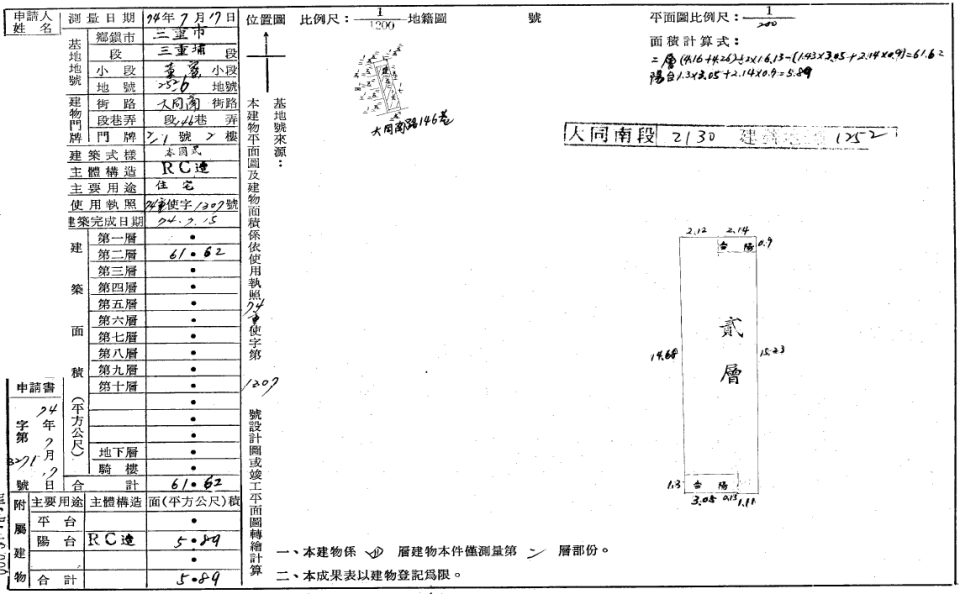 申請人姓名
測量日期 74年7月17日
基地地號
鄉鎮市 三重市
段 三重埔 段
小段 小段
地號 252-6 地號
建物門牌
街路 大同南 街路
段巷弄 段146巷 弄
門牌 號 2 樓
建築式樣 本國式
主體構造 RC造
主要用途 住宅
使用執照 74重使字1207號
建築完成日期 74.7.15
建築面積(平方公尺)
第一層 •
第二層 61•62
第三層 •
第四層 •
第五層 •
第六層 •
第七層 •
第八層 •
第九層 •
第十層 •
•
•
•
地下層 •
騎樓 •
合計 61•62
申請書
74年7月17日
字第3271號
附屬建物
主要用途 主體構造 面(平方公尺)積
平台 •
陽台 RC造 5•89
•
合計 5•89
位置圖 比例尺:1/1200 地籍圖 號
大同南路146巷
基地號來源:
本建物平面圖及建物面積係依使用執照74重使字第1207號設計圖或竣工平面圖轉繪計算
平面圖比例尺:1/200
面積計算式:
二層(4.16+4.26)÷2×16.13-(1.43×3.05+2.14×0.9)=61.62
陽台1.3×3.05+2.14×0.9=5.89
大同南段 2130 建號 1252
2.12 2.14
台陽 0.9
貳層
14.68 15.23
1.3 台陽
3.05 0.13 1.11
一、本建物係 四 層建物本件僅測量第 二 層部份。
二、本成果表以建物登記爲限。